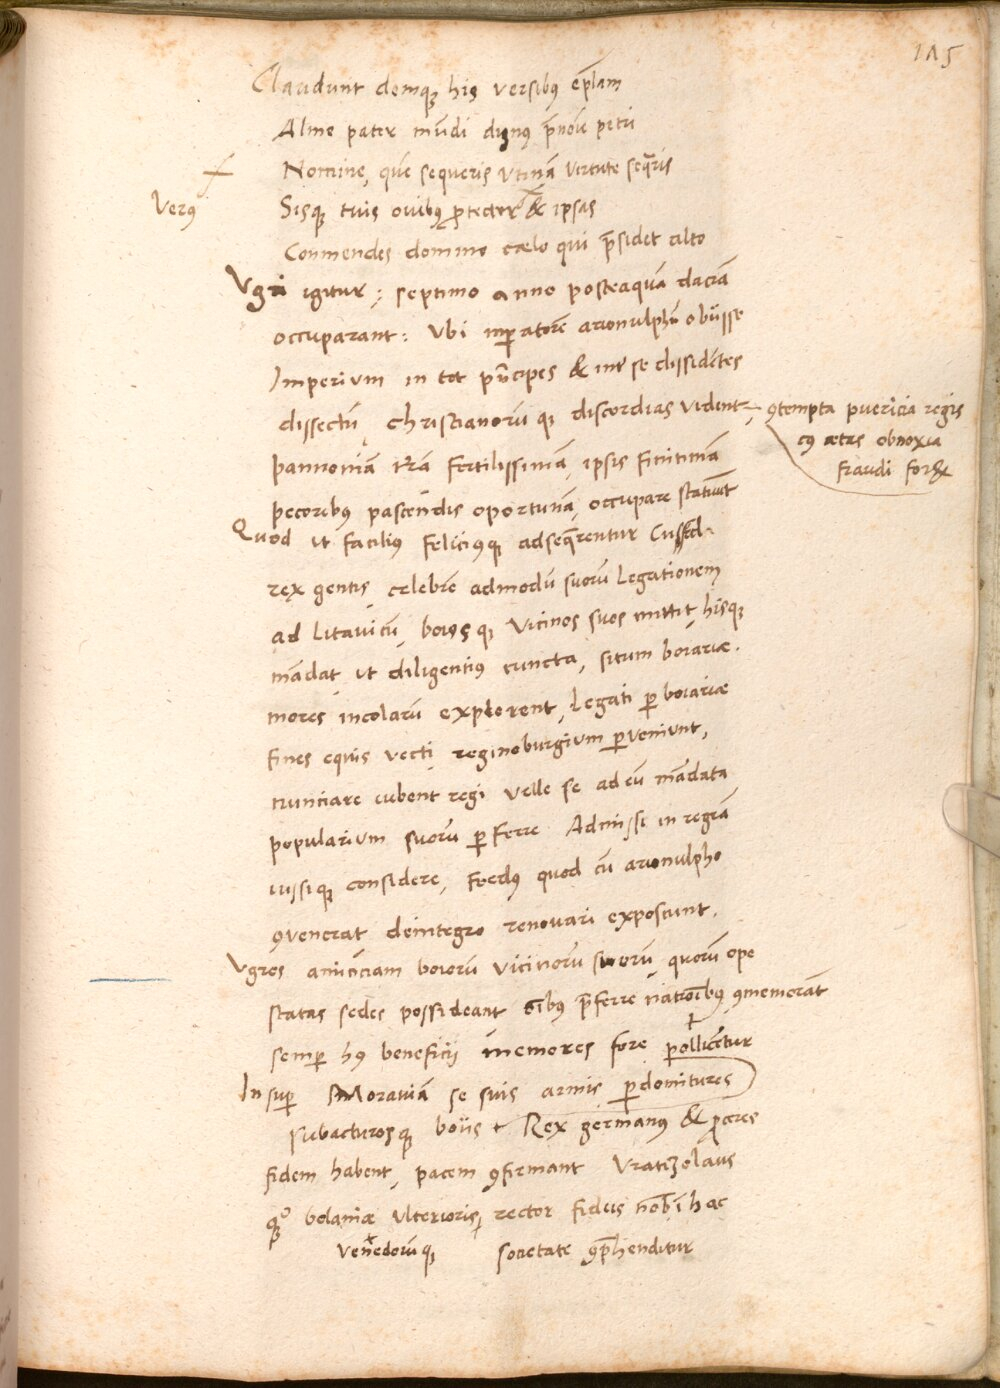 115
Claudunt demq₃ his versibꝰ ep̄lam
Alme pater mūdi dignꝰ p̄nōie petri
Nomine, quē sequeris utinā virtute seq̄ris
Verꝰ Sisq₃ tuis ovibꝰ ꝓtector & ipsas
Commendes domino cælo qui p̄sidet alto
Vgri igitur; septimo anno posteaquā daciā
occuparant: Vbi imꝑatorē arionulphū obiisse
Imperium in tot p̄ncipes & int' se dissidētes
dissectū, christianorū q₃ discordias vident, ꝯtempta puericia regis
cꝰ ætas obnoxia
fraudi foret
pannoniā t̄rā fertilissimā, ipsis finitimā
pecoribꝰ pascendis oportunā, occupare statuūt
Quod ut faciliꝰ feliciꝰq₃ adseq̄rentur Cussal
rex gentis, celebrē admodū suorū legationem
ad litavicū, boios q₃ vicinos suos mittit, hisq₃
mādat, ut diligentiꝰ cuncta, situm boiariæ.
mores incolarū explorent, Legati ꝑ boiariæ
fines equis vecti, reginoburgium ꝑveniunt,
nunciare iubent regi velle se ad eū mādata
popularium suorū ꝑferre Admissi in regiā
iussiq₃ considere, foedꝰ quod cū arionulpho
ꝯvenerat deintegro renovari exposcunt.
Vgros amicitiam boiorū vicinorū suorū, quorū ope
statas sedes possideant oībꝰ p̄ferre natiōibꝰ ꝯmemorāt
semꝑ hꝰ beneficii memores fore pollicētur
Insuꝑ Moraviā se suis armis ꝑdomitures
subacturosq₃ boiis + Rex germanꝰ & ꝓceres
fidem habent, pacem ꝯfirmant Vratizolaus
q₃° bolaniæ ulterioris, rector fidus nob̄ ī hac
venedorū q₃ societate ꝯp̄henditur